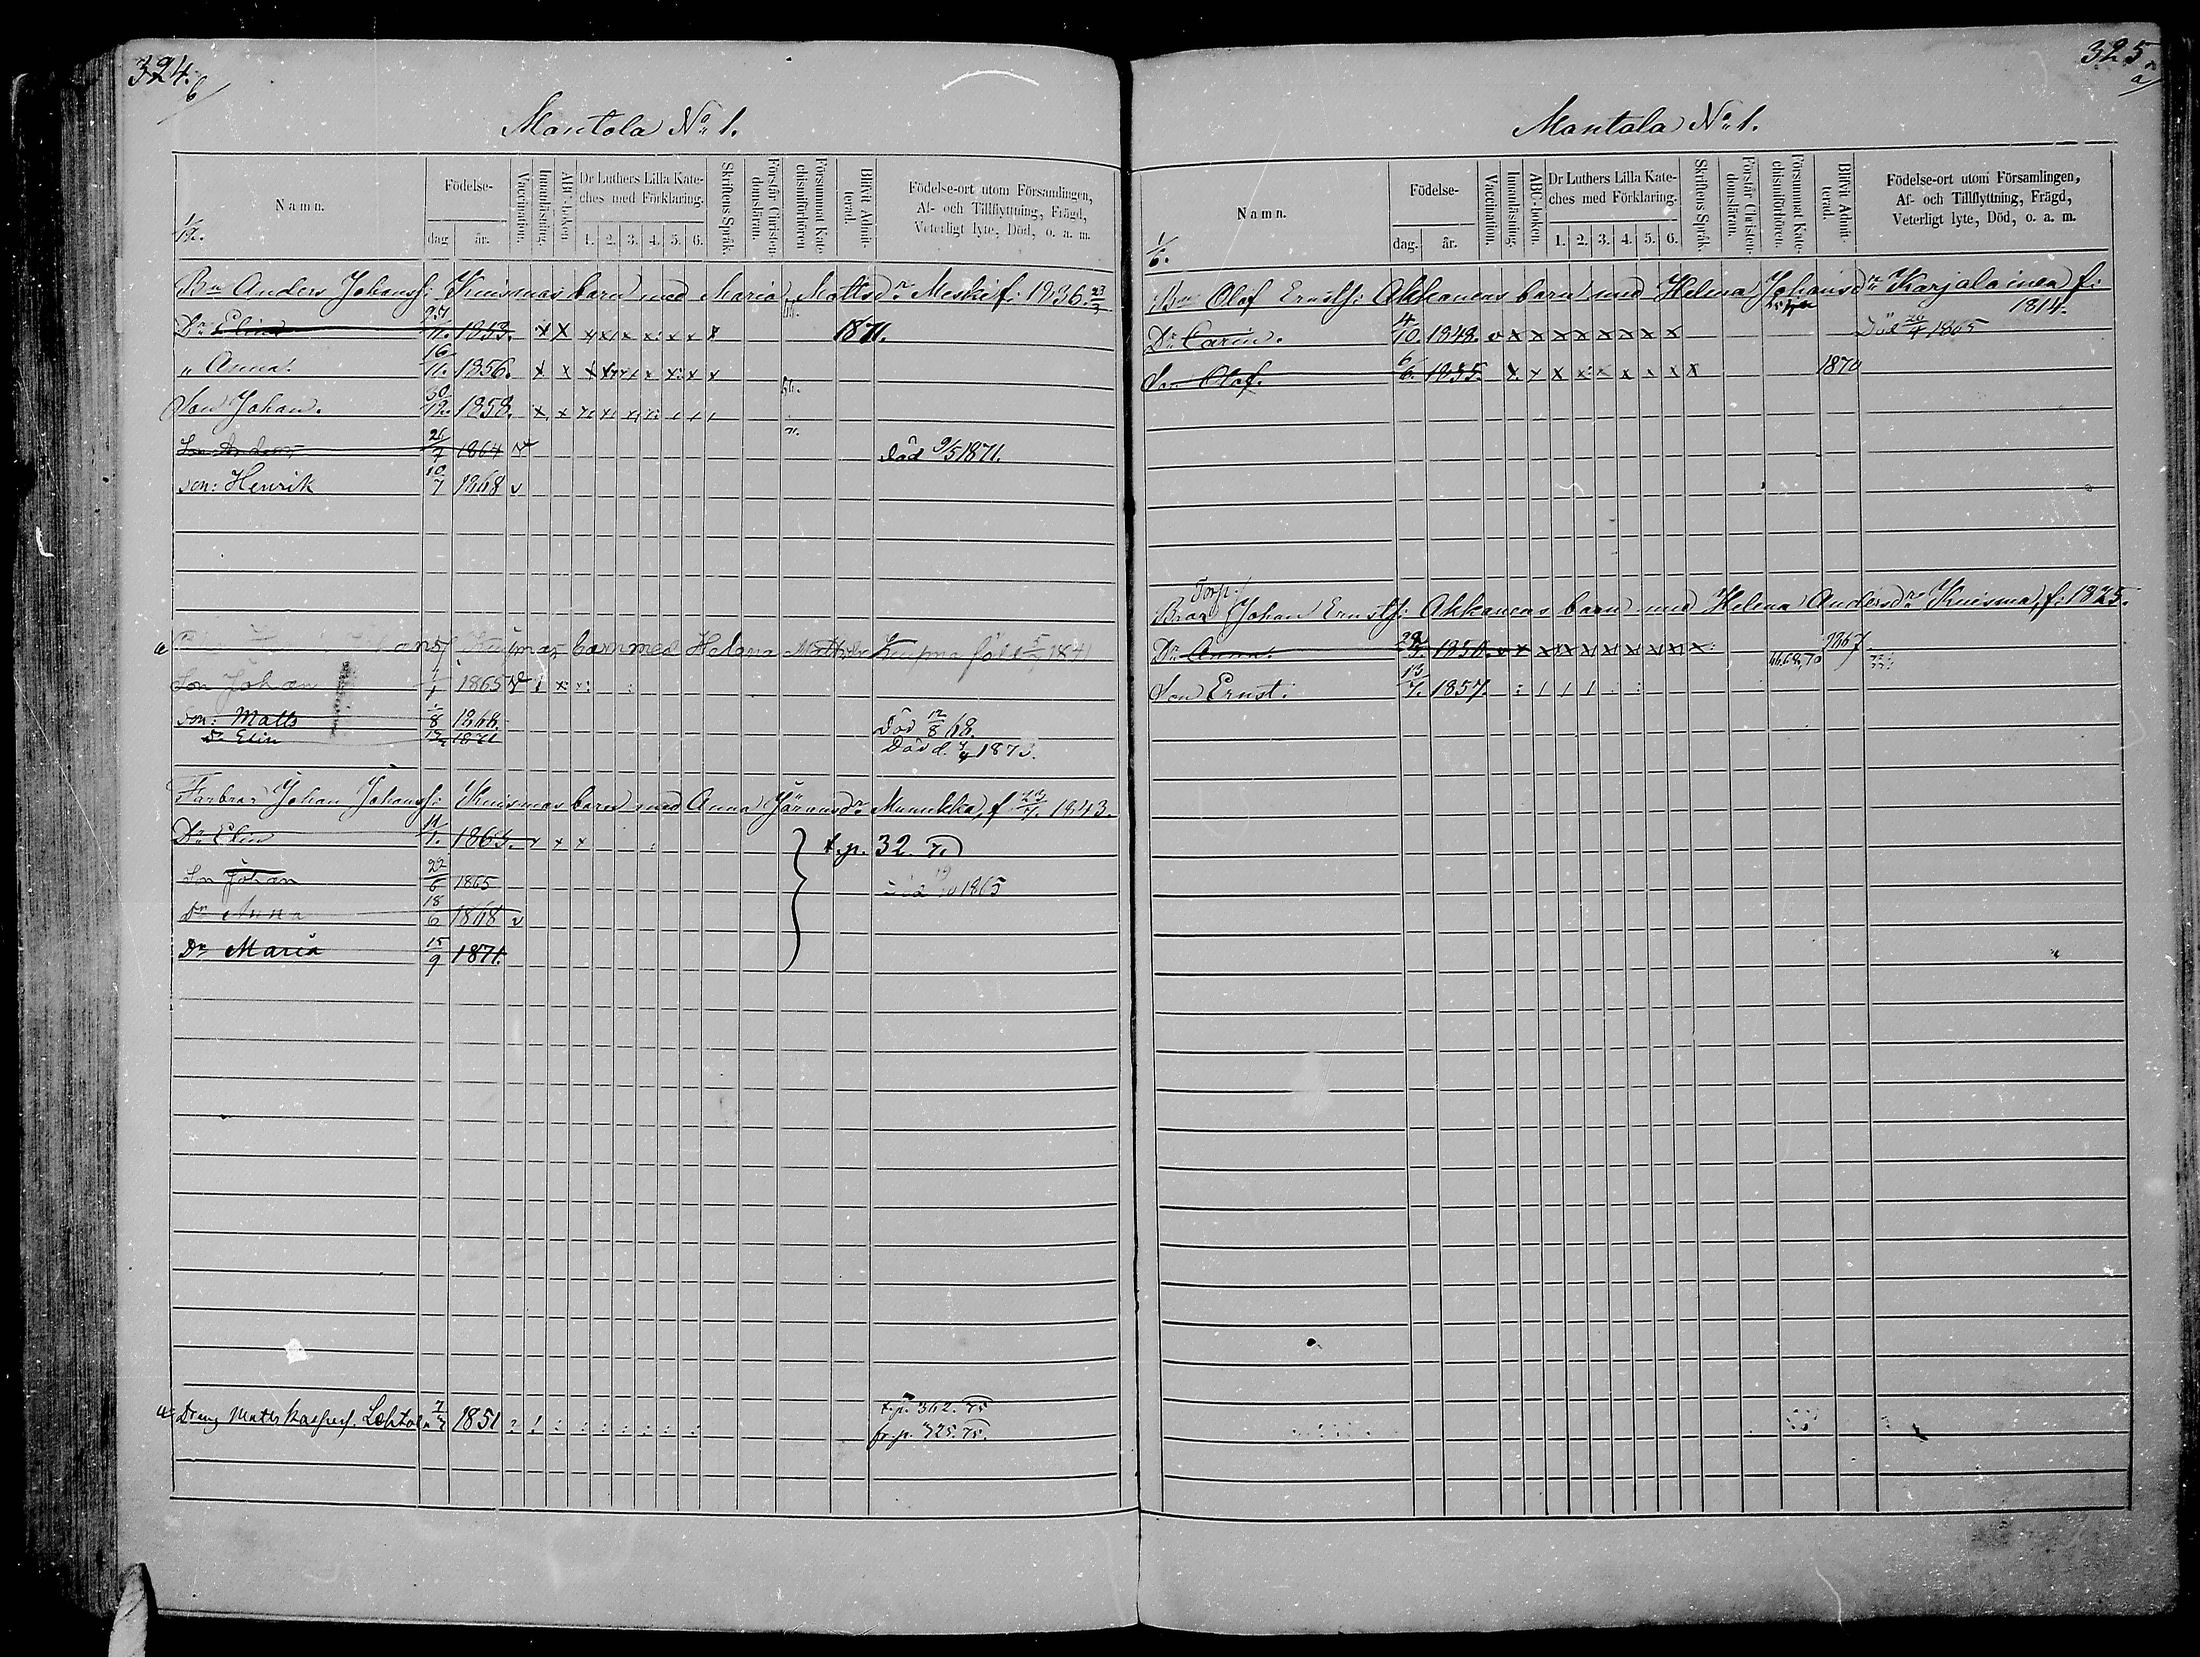 324.
b/
Mantola No 1.
Namn.
Födelse-
dag
år.
Vaccination.
Innanläsning.
ABC-boken
Dr Luthers Lilla Kate-
ches med Förklaring.
1. 2. 3. 4. 5. 6.
Skriftens Språk.
Förstår Christen-
domsläran.
Försummat Kate-
chismiförhören
Blifvit Admit-
terad.
Födelse-ort utom Församlingen,
Af- och Tillflyttning, Frägd,
Veterligt lyte, Död, o. a. m.
1/12.
Bn Anders Johansf: Kuismas barn med Maria Mattsdr Meski f: 1836. 23/3
Dr Elina 1853. x x x x x x x x x 1871.
" Anna. 16/11. 1856. x x x x x x x x x
Son Johan. 30/12. 1858. x x x x x x
Son Anders 26/7 1864 v Död 9/5 1871.
Son: Henrik 10/7 1868 v
Kuismas barn med Helena född 5/7 1841
Son Johan 1/1 1865 v
Son: Matts 1/8 1868 Död 12/8 68.
Dr Elin 1871 Död d. 4/4 1873.
Farbror Johan Johansf: Kuismas barn med Anna Göransdr Munukka, f. 23/7. 1843.
Dr Elin 1863. x x x t.p. 32. 71
Son Johan 22/6 1865 1865
Dr Anna 18/6 1868 v
Dr Maria 15/9 1871.
Dräng Matts Kaspersf. Lehtola 7/7 1851 t.p. 362. 75
fr.p. 325. 75.
325.
a/
Mantola No 1.
Namn.
Födelse-
dag.
år.
Vaccination.
Innanläsning.
ABC-boken.
Dr Luthers Lilla Kate-
ches med Förklaring.
1. 2. 3. 4. 5. 6.
Skriftens Språk.
Förstår Christen-
domsläran.
Försummat Kate-
chismiförhören.
Blifvit Admit-
terad.
Födelse-ort utom Församlingen,
Af- och Tillflyttning, Frägd,
Veterligt lyte, Död, o. a. m.
1/6.
Bn Olof Ernstsf: Akkanens barn med Helena Johansdr Karjalainen f:
1814.
Dr Carin. 4/10. 1848. v x x x x x x x x Död 26/4 1865
Son Olof. 6/6. 1855. x. x x x x x x x x 1870
Torp.
Bror Johan Ernstsf: Akkanens barn med Helena Andersdr Kuisma, f: 1825.
Dr Anna. 1850. v x x x x x x x x x 1867.
Son Ernst. 13/7. 1857. 66,68,70